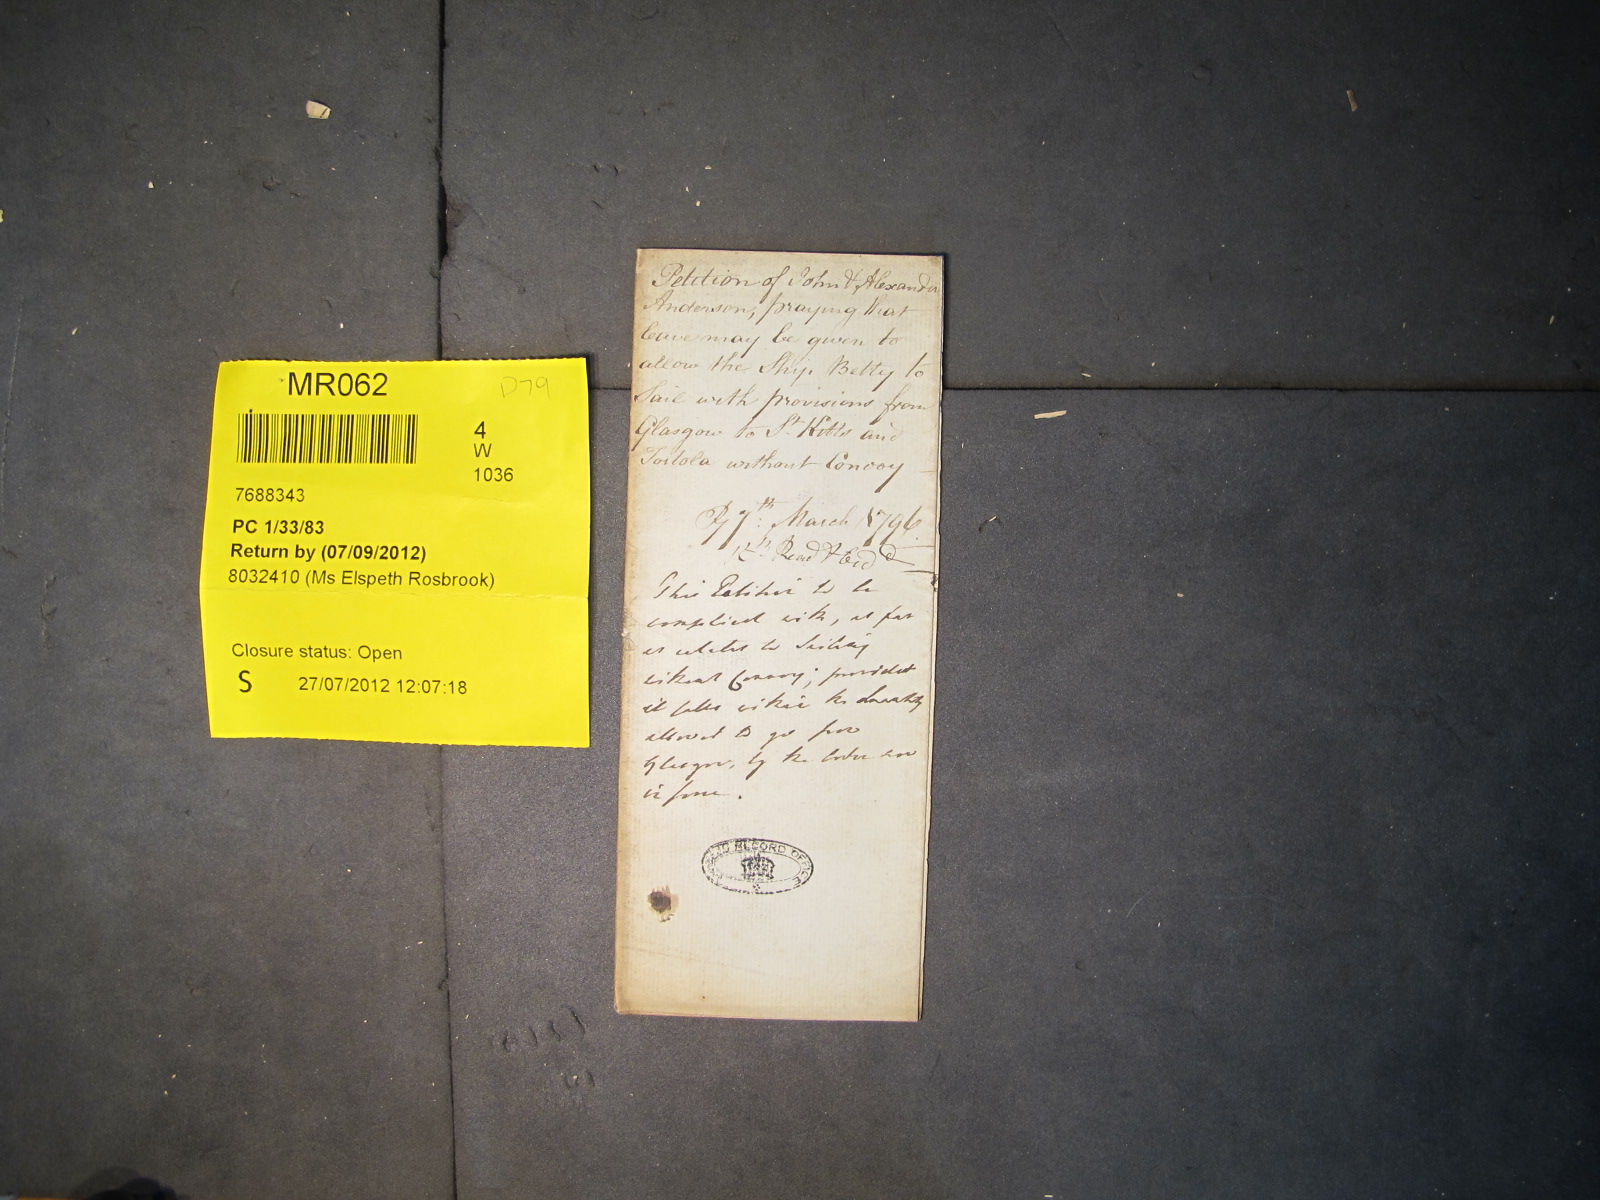 MR062
D79
4
W
1036
7688343
PC 1/33/83
Return by (07/09/2012)
8032410 (Ms Elspeth Rosbrook)
Closure status: Open
S 27/07/2012 12:07:18
Petition of John & Alexander
Anderson, praying that
leave may be given to
allow the Ship Betty to
Sail with provisions from
Glasgow to St. Kitts and
Tortola without Convoy
7th: March 1796
12th Read &
This Petition to be
complied with, as far
as relates to Sailing
without Convoy, provided
it falls within the quantity
allowed to go from
Glasgow, by the order now
in force.
PUBLIC RECORD OFFICE